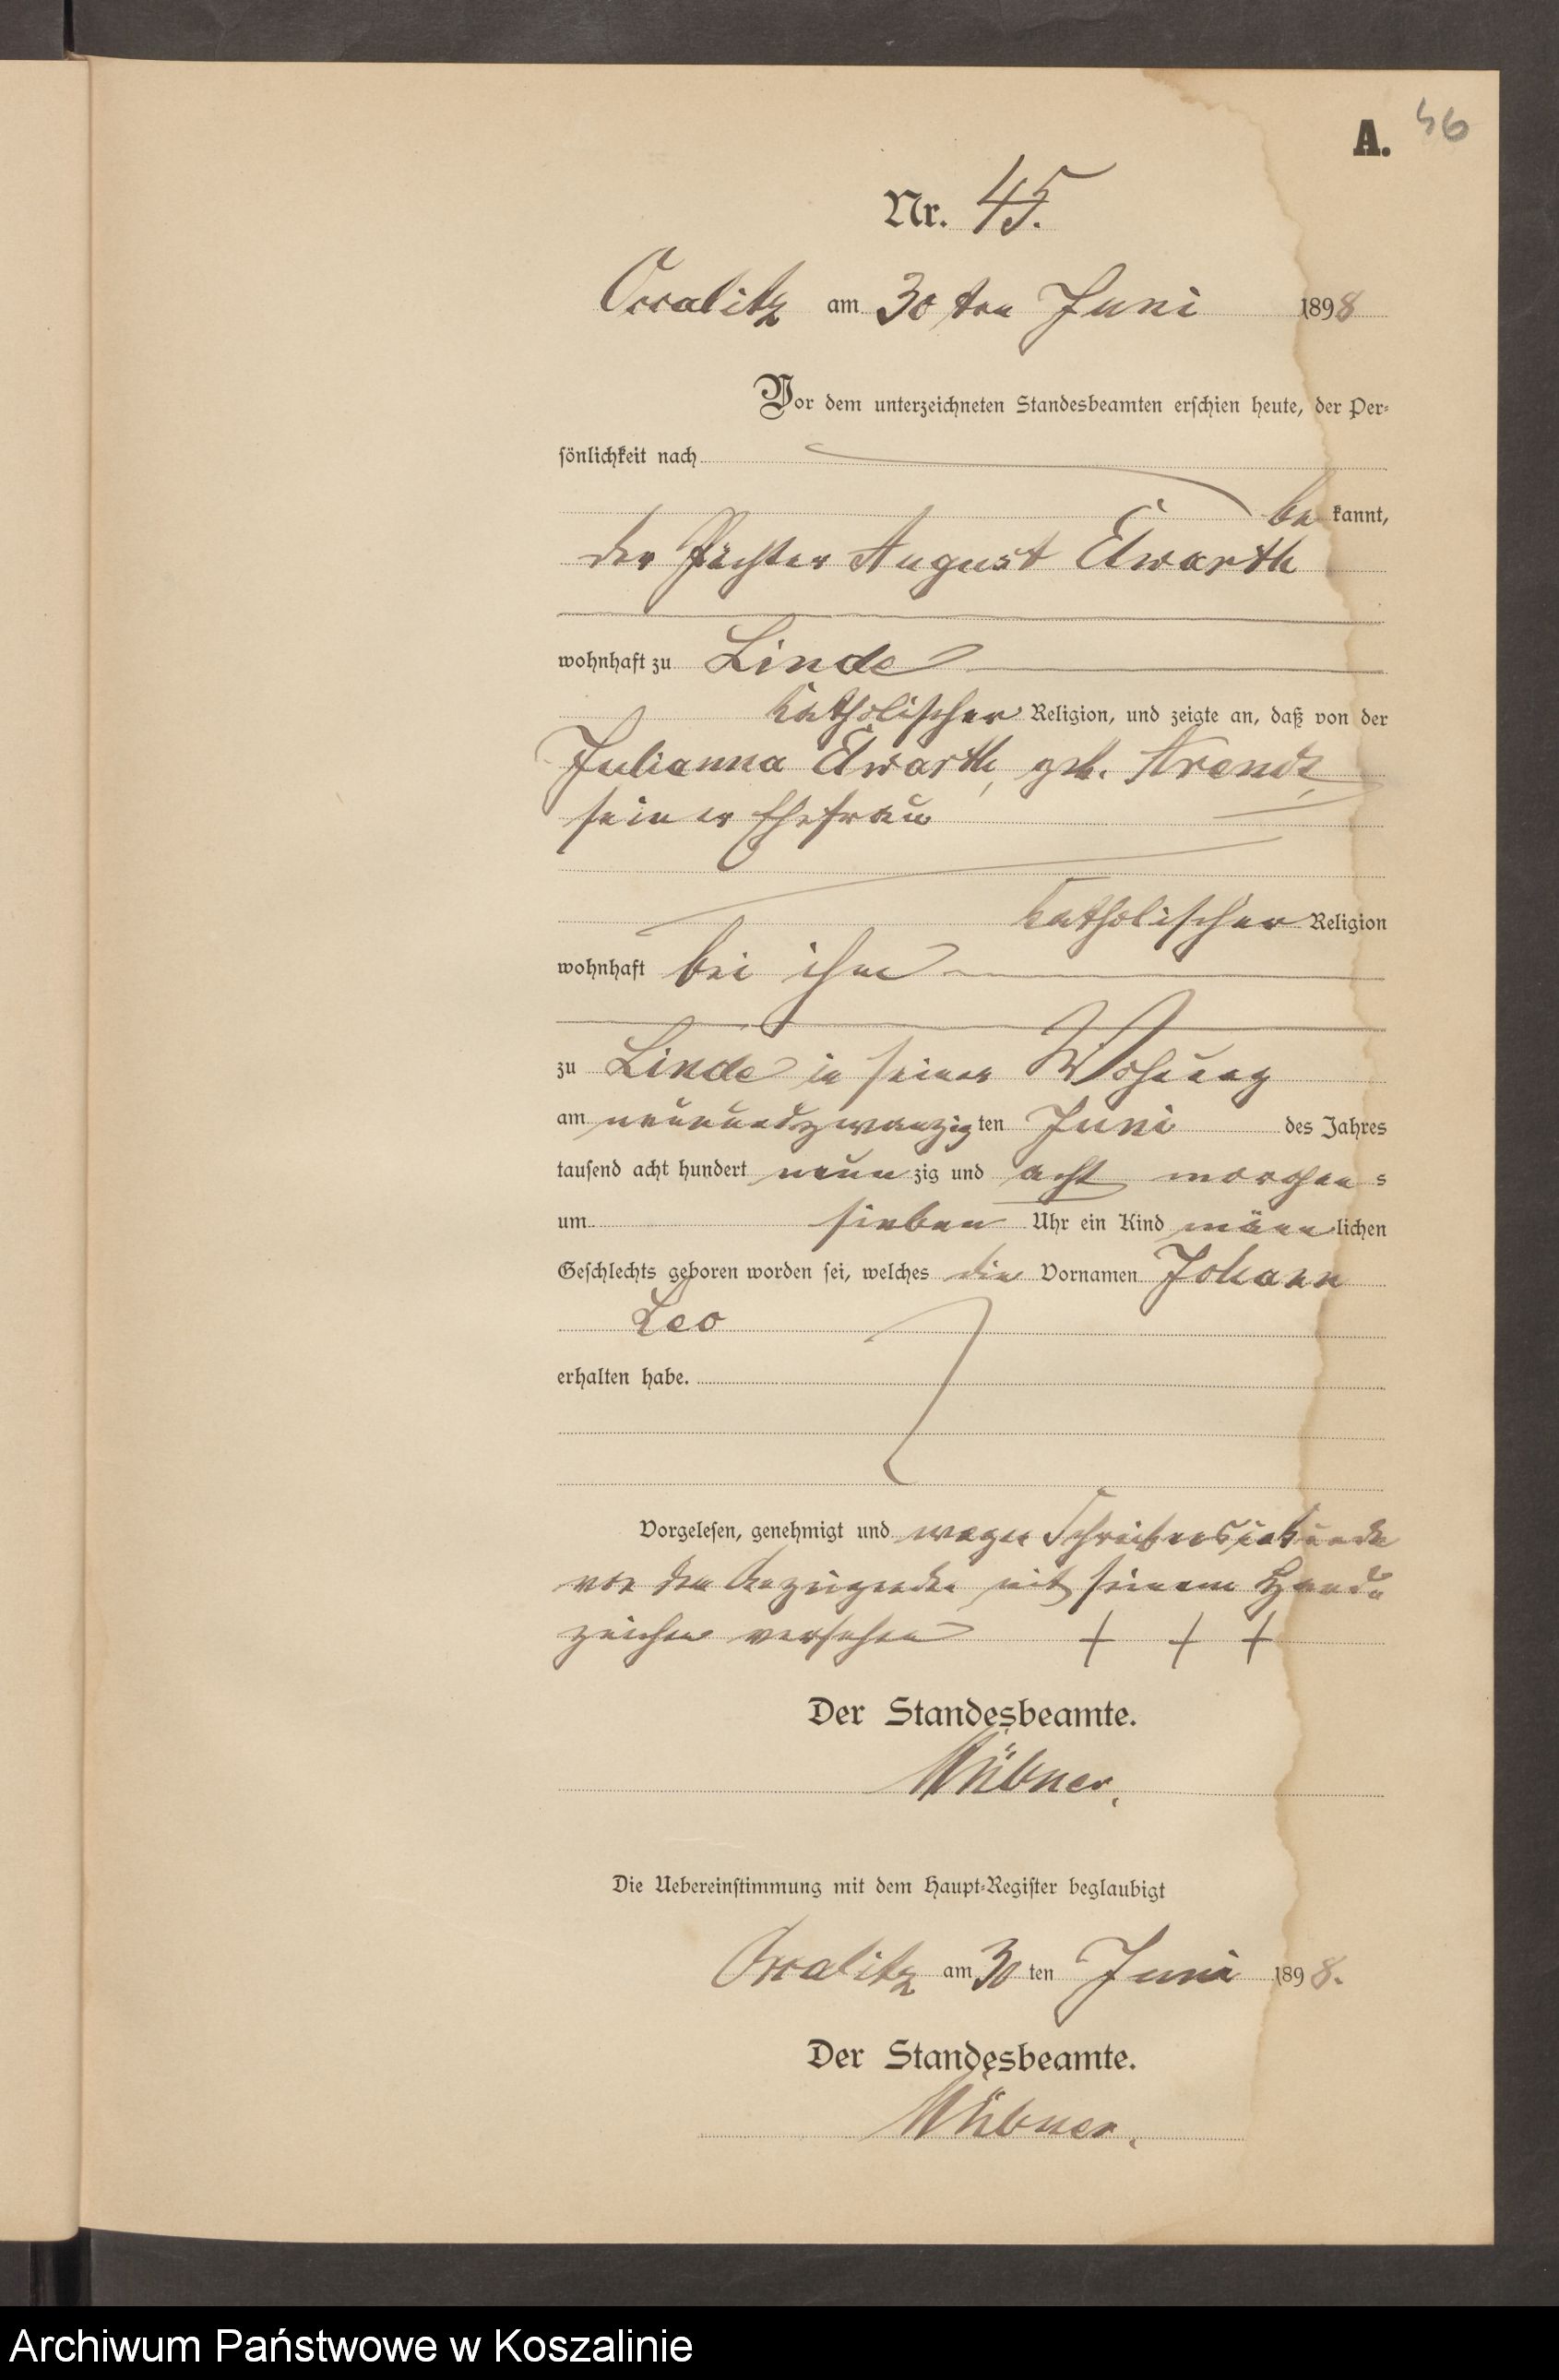 A. 46
Nr. 45.
Ossalitz am 30 ten Juni 1898
Vor dem unterzeichneten Standesbeamten erschien heute, der Per-
sönlichkeit nach
be kannt,
der Pächter August Elwarth
wohnhaft zu Linde
katholischer Religion, und zeigte an, daß von der
Julianna Elwarth, geb. Arendt,
seiner Ehefrau
katholischer Religion
wohnhaft bei ihm
zu Linde in seiner Wohnung
am neunundzwanzig ten Juni des Jahres
tausend acht hundert neun zig und acht morgen s
um sieben Uhr ein Kind männ lichen
Geschlechts geboren worden sei, welches die Vornamen Johann
Leo
erhalten habe.
Vorgelesen, genehmigt und wegen Schreibensunkunde
von dem Anzeigenden mit seinem Hand-
zeichen versehen + + +
Der Standesbeamte.
Hübner.
Die Uebereinstimmung mit dem Haupt-Register beglaubigt
Ossalitz am 30 ten Juni 1898.
Der Standesbeamte.
Hübner.
Archiwum Państwowe w Koszalinie